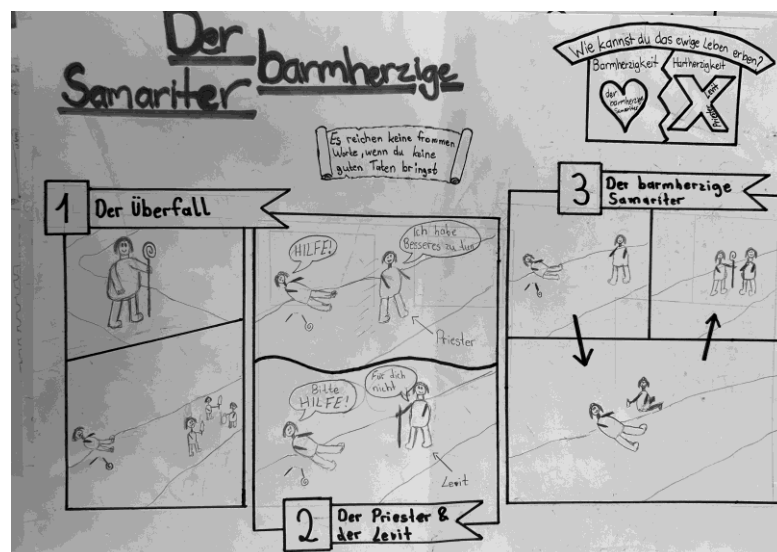 Der barmherzige
Samariter
Wie kannst du das ewige Leben erben?
Barmherzigkeit
Hartherzigkeit
der
barmherzige
Samariter
Levit
Priester
Es reichen keine frommen
Worte, wenn du keine
guten Taten bringst
1 Der Überfall
HILFE!
Ich habe
Besseres zu tun
Priester
Bitte
HILFE!
Für dich
nicht
Levit
2 Der Priester &
der Levit
3 Der barmherzige
Samariter